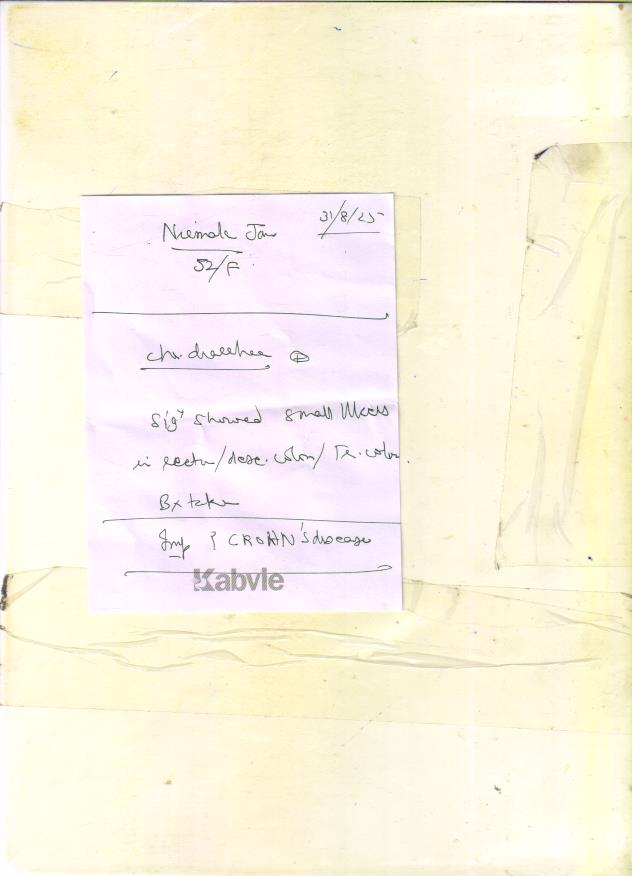 31/8/25
Nirmala Jain
52/F
chr. diarrhea ⊕
Sigy showed small Ulcers
in rectum/desc. colon/Tr. colon.
Bx taken
Imp ? CROHN's disease
Kabvie